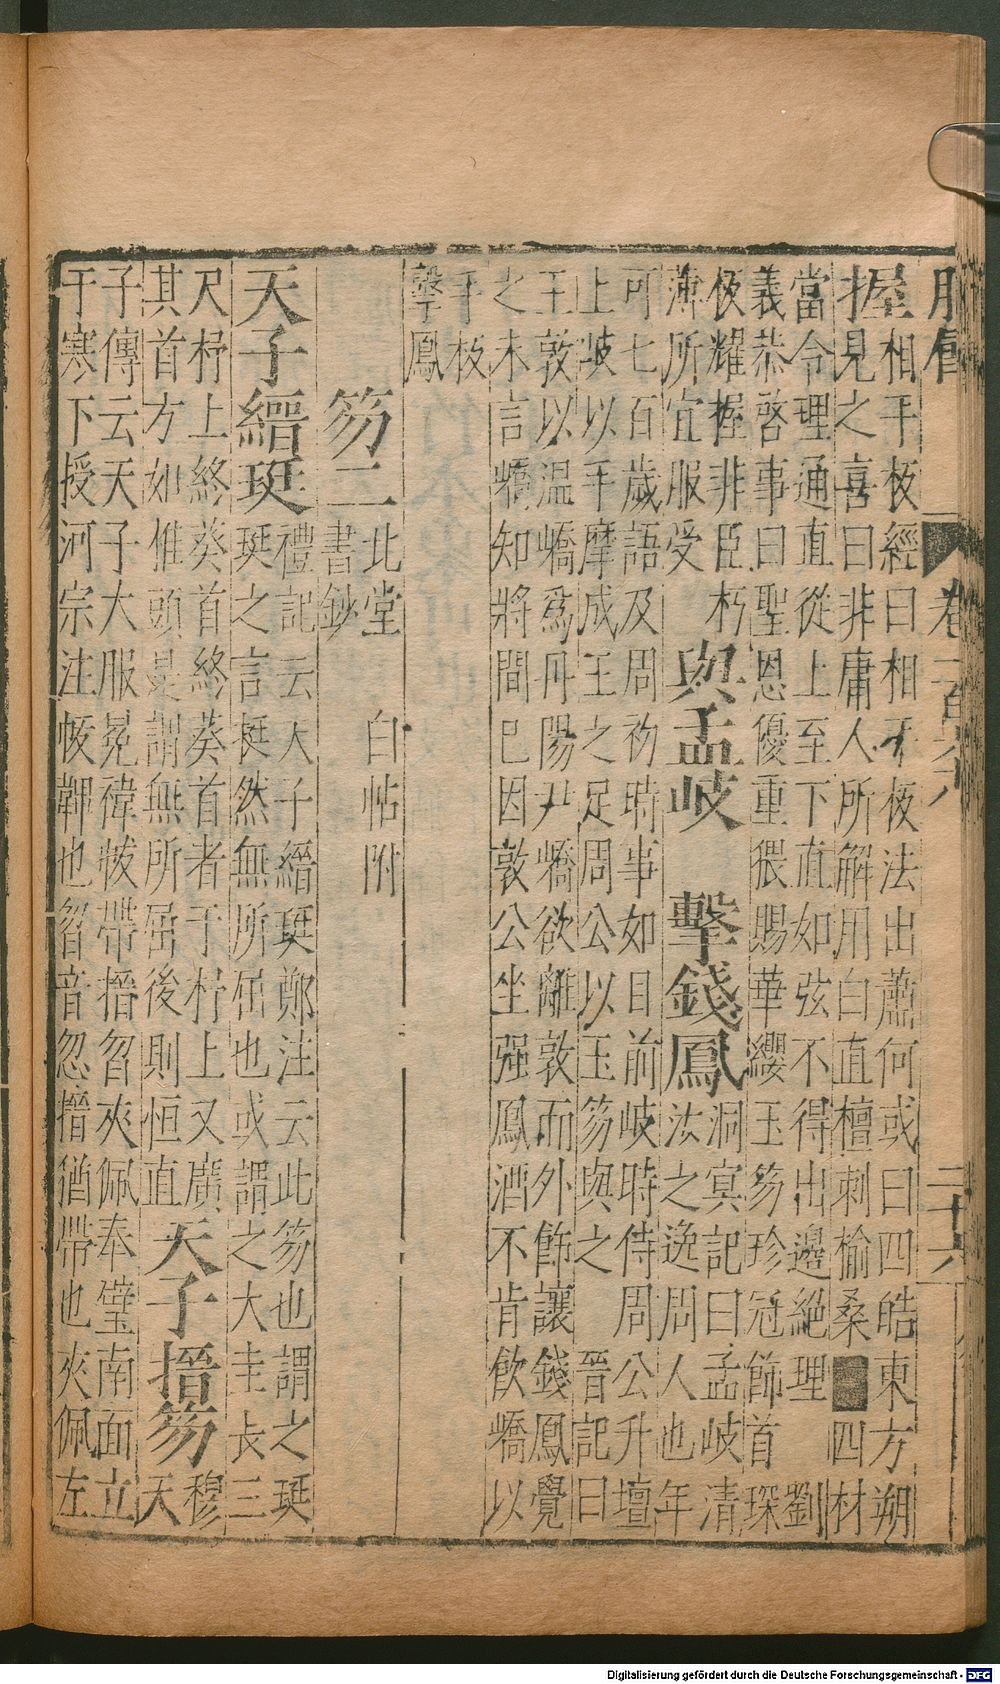 服飾 卷二百六 二十六
握 相手板經曰相手板法出蕭何或曰四皓東方朔
見之喜曰非庸人所解用白直檀刺榆桑四材
當令理通直從上至下直如弦不得出邊絕理 劉
義恭啓事曰聖恩優重猥賜華纓玉笏珍冠飾首琛
板耀握非臣朽
薄所宜服受 與孟岐 擊錢鳳 洞冥記曰孟岐清
汝之逸周人也年
可七百歲語及周初時事如目前岐時侍周公升壇
上岐以手摩成王之足周公以玉笏與之 晉記曰
王敦以温嶠爲丹陽尹嶠欲離敦而外飾讓錢鳳覺
之未言嶠知將間已因敦公坐强鳳酒不肯飲嶠以
手板
擊鳳
笏二 北堂書鈔 白帖附
天子縉珽 禮記云天子縉珽鄭注云此笏也謂之珽
珽之言挺然無所屈也或謂之大圭長三
尺杼上終葵首終葵首者于杼上又廣
其首方如椎頭是謂無所屈後則恒直 天子搢笏 穆
天
子傳云天子大服冕褘帗帶搢曶夾佩奉璧南面立
于寒下授河宗注帗韠也曶音忽搢猶帶也夾佩左
Digitalisierung gefördert durch die Deutsche Forschungsgemeinschaft - DFG